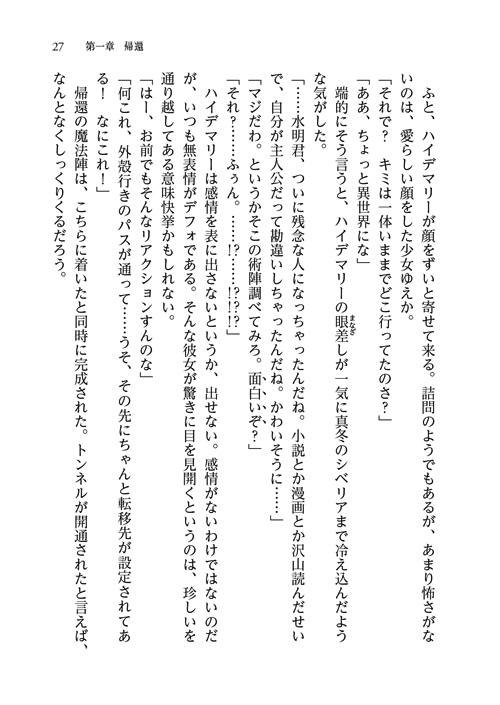 27　第一章　帰還
ふと、ハイデマリーが顔をずいと寄せて来る。詰問のようでもあるが、あまり怖さがな
いのは、愛らしい顔をした少女ゆえか。
「それで？　キミは一体いままでどこ行ってたのさ？」
「ああ、ちょっと異世界にな」
端的にそう言うと、ハイデマリーの眼差しが一気に真冬のシベリアまで冷え込んだよう
まなざ
な気がした。
「……水明君、ついに残念な人になっちゃったんだね。小説とか漫画とか沢山読んだせい
で、自分が主人公だって勘違いしちゃったんだね。かわいそうに……」
「マジだわ。というかそこの術陣調べてみろ。面白いぞ？」
「それ？……ふぅん。……！？……！？！？」
ハイデマリーは感情を表に出さないというか、出せない。感情がないわけではないのだ
が、いつも無表情がデフォである。そんな彼女が驚きに目を見開くというのは、珍しいを
通り越してある意味快挙かもしれない。
「はー、お前でもそんなリアクションすんのな」
「何これ、外殻行きのパスが通って……うそ、その先にちゃんと転移先が設定されてあ
る！　なにこれ！」
帰還の魔法陣は、こちらに着いたと同時に完成された。トンネルが開通されたと言えば、
なんとなくしっくりくるだろう。